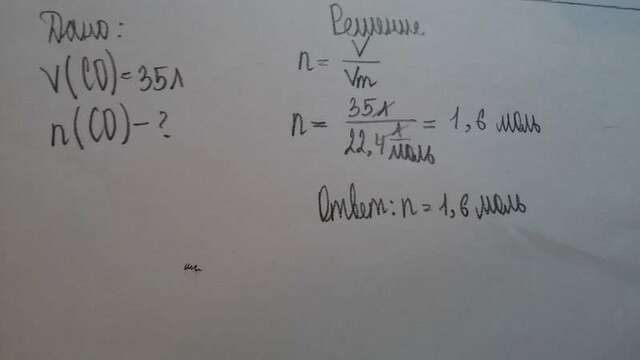 Дано:
V(CO)=35л
n(CO)-?
Решение
n = V/Vm
n = 35л/22,4 л/моль = 1,6 моль
Ответ: n = 1,6 моль